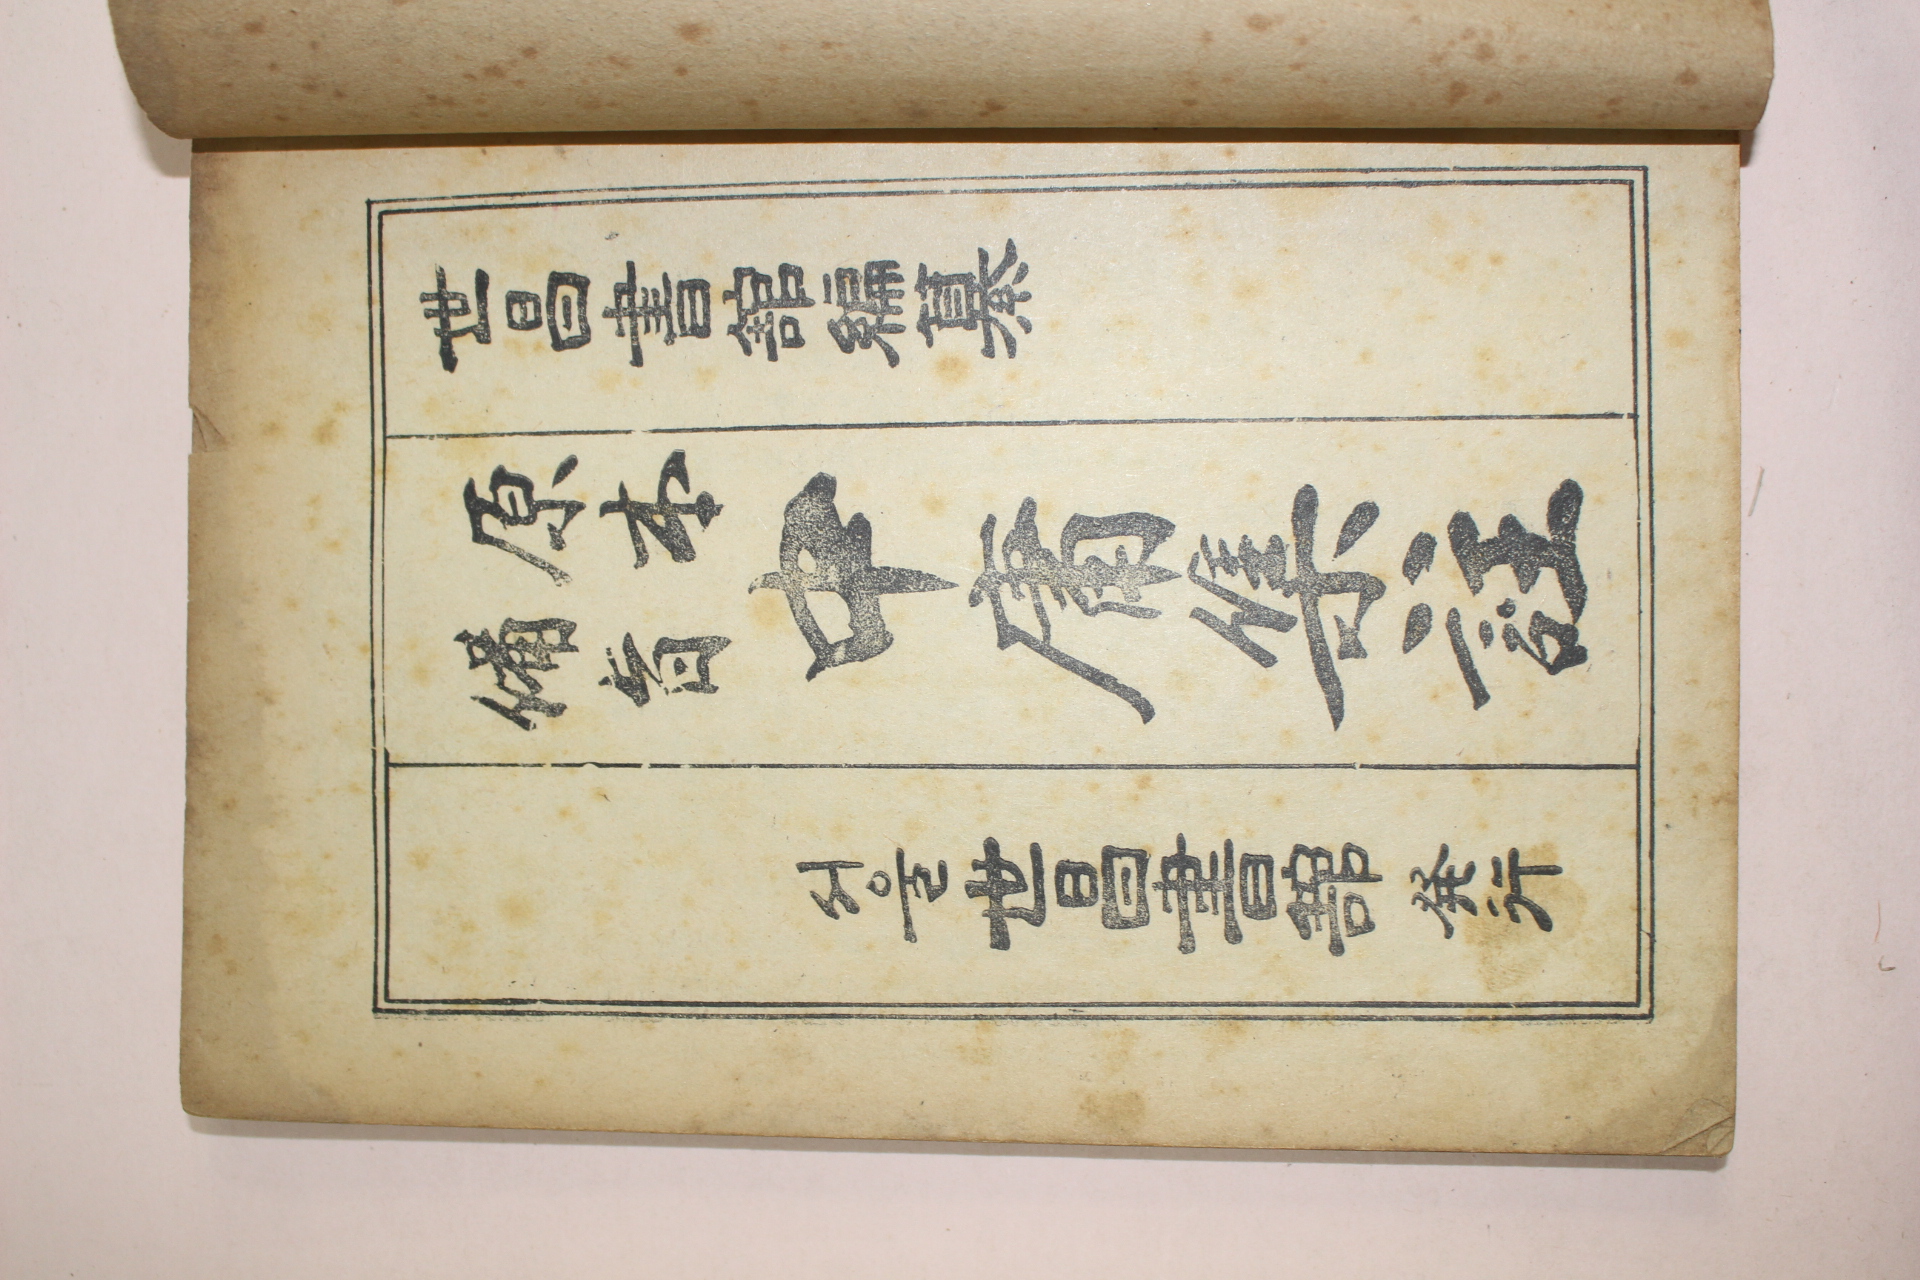 世昌書館編纂
原本
備旨
中庸集註
서울世昌書館發行